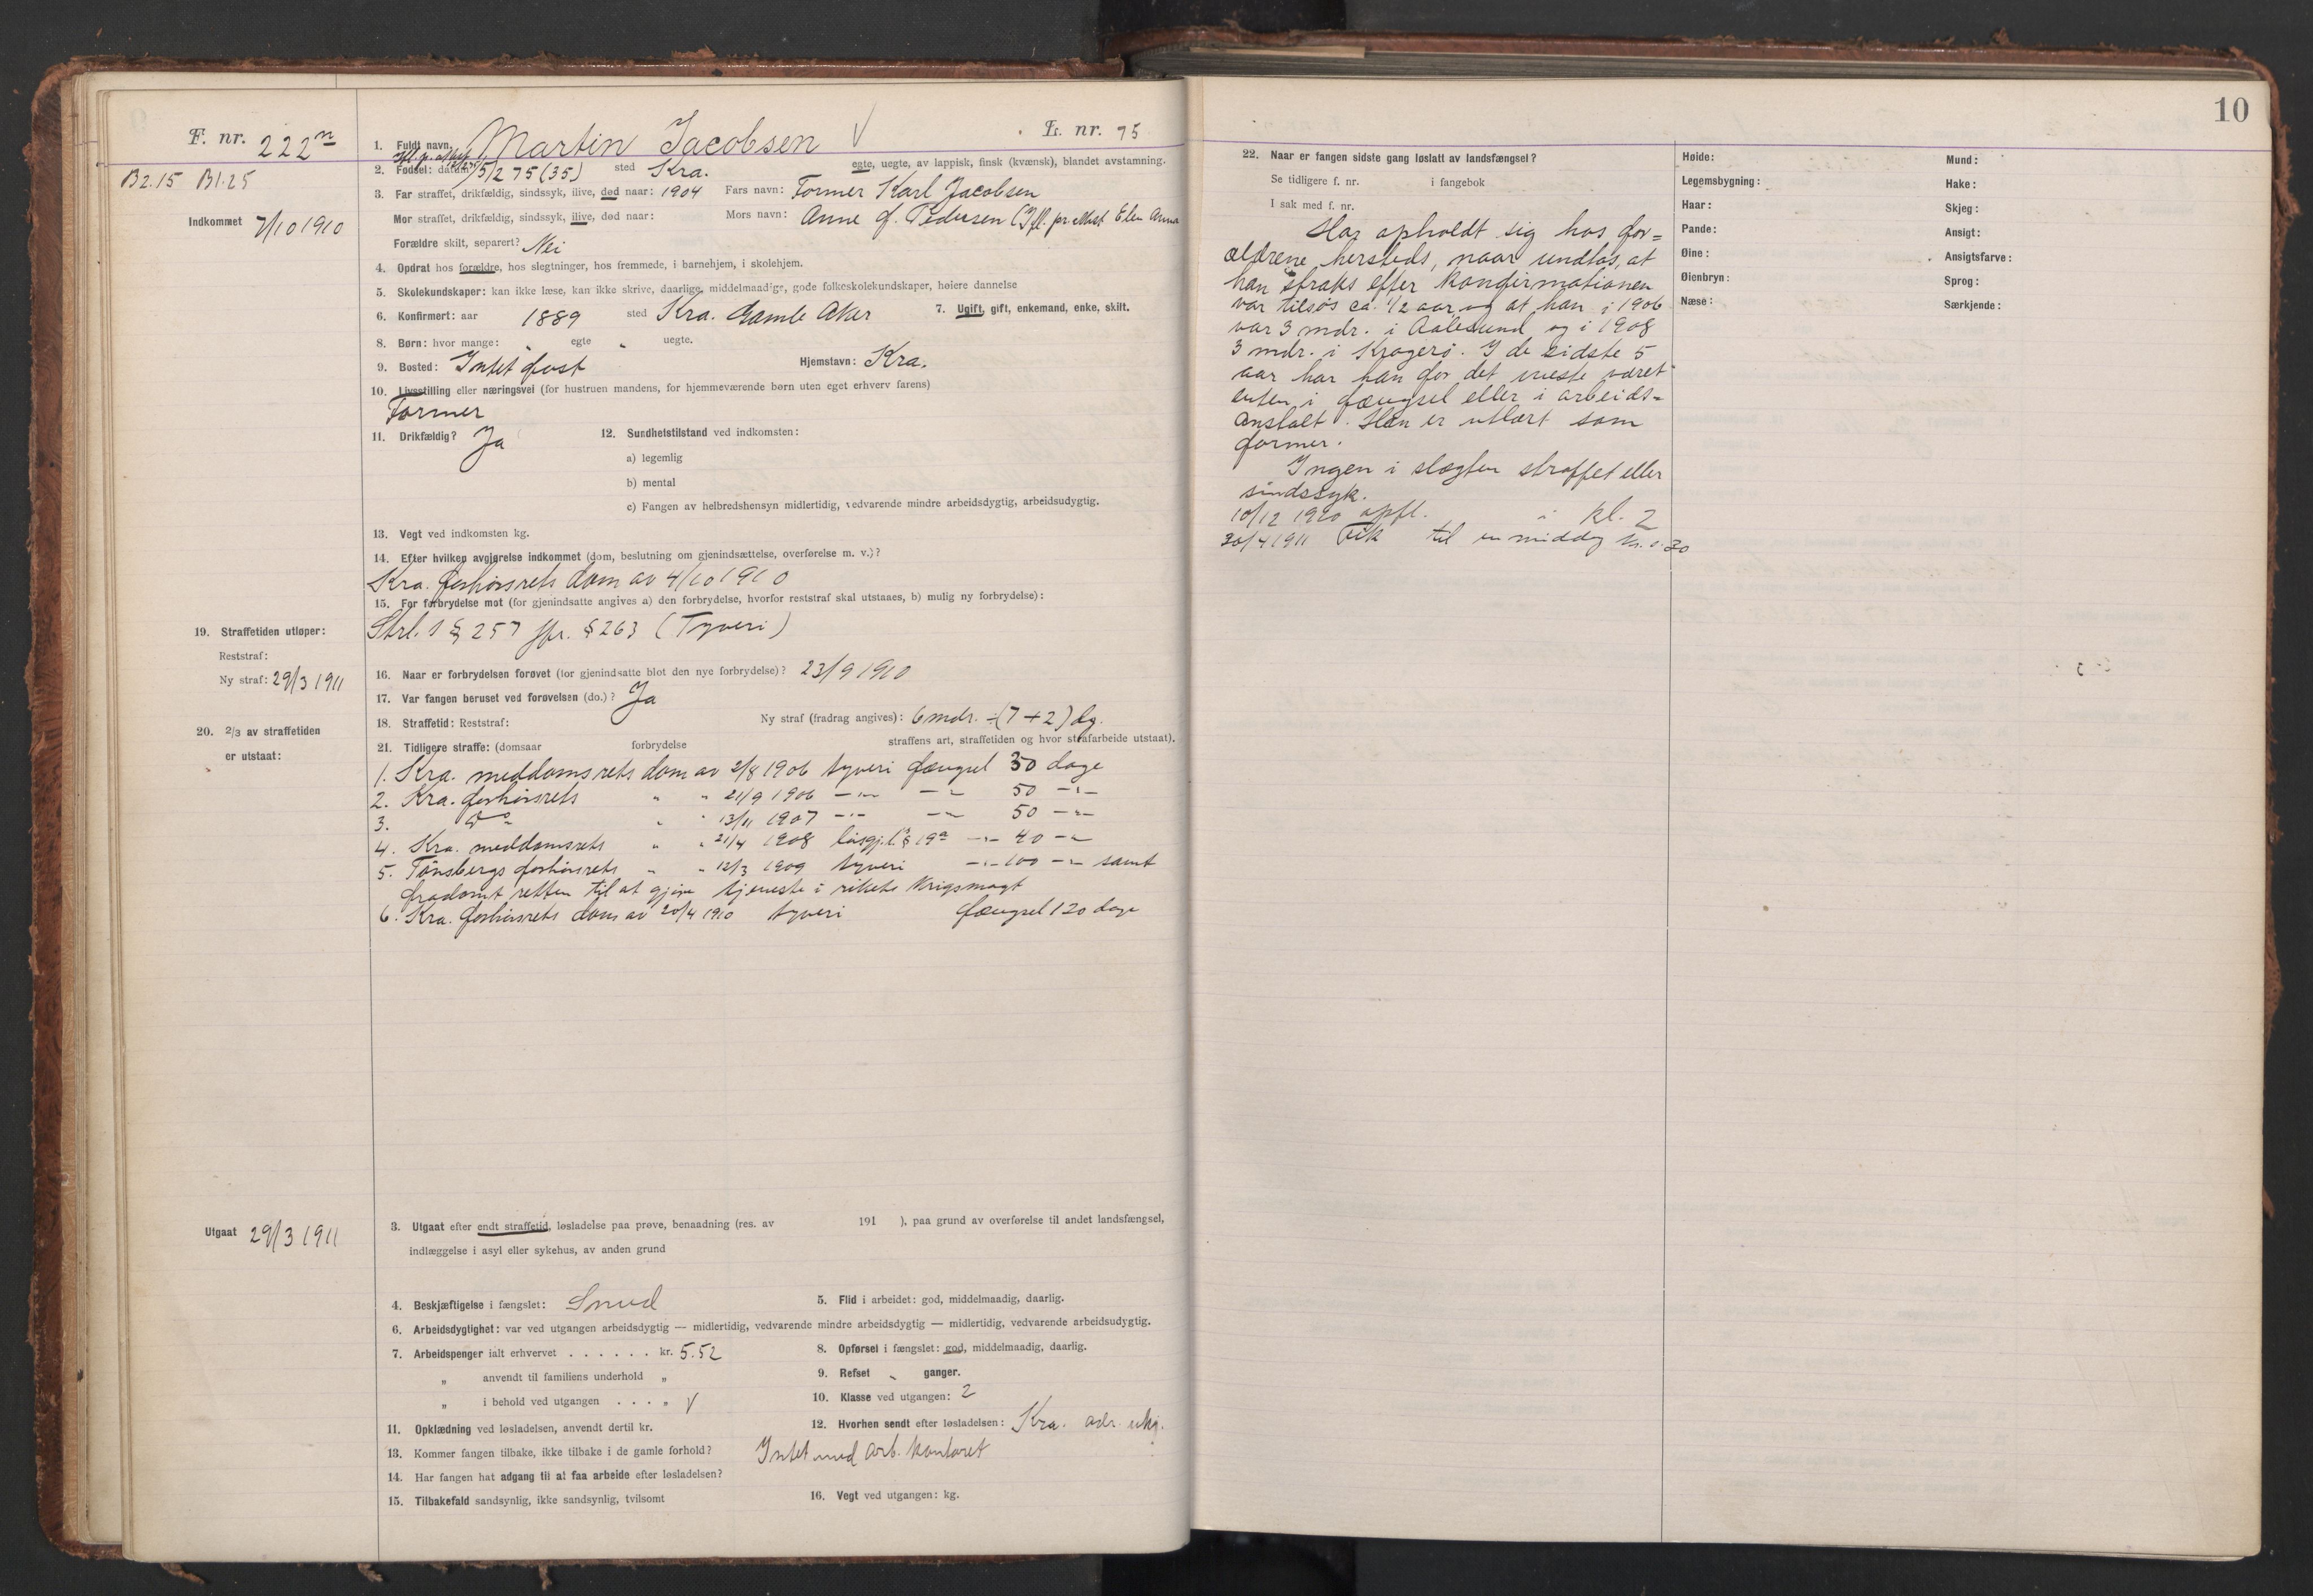 10
F. nr. 222
1. Fuldt navn. Martin Jacobsen
L. nr. 75
B2.15 B1.25
2. Fødsel: datum 75 (35) sted Kra. egte, uegte, av lappisk, finsk (kvænsk), blandet avstamning.
3. Far straffet, drikfældig, sindssyk, ilive, død naar: 1904 Fars navn: Former Karl Jacobsen
Indkommet 7/10 1910
Mor straffet, drikfældig, sindssyk, ilive, død naar: Mors navn: Anne f. Pedersen (Ifl. pr. attest Elen Anna
Forældre skilt, separert? Nei
4. Opdrat hos forældre, hos slegtninger, hos fremmede, i barnehjem, i skolehjem.
5. Skolekundskaper: kan ikke læse, kan ikke skrive, daarlige, middelmaadige, gode folkeskolekundskaper, høiere dannelse
6. Konfirmert: aar 1889 sted Kra. Gamle Aker 7. Ugift, gift, enkemand, enke, skilt.
8. Børn: hvor mange: " egte " uegte.
9. Bosted: Intet fast Hjemstavn: Kra.
10. Livsstilling eller næringsvei (for hustruen mandens, for hjemmeværende børn uten eget erhverv farens)
Former
11. Drikfældig? Ja 12. Sundhetstilstand ved indkomsten:
a) legemlig
b) mental
c) Fangen av helbredshensyn midlertidig, vedvarende mindre arbeidsdygtig, arbeidsudygtig.
13. Vegt ved indkomsten kg.
14. Efter hvilken avgjørelse indkommet (dom, beslutning om gjenindsættelse, overførelse m. v.)?
Kra. forhørsrets dom av 4/10 1910
15. For forbrydelse mot (for gjenindsatte angives a) den forbrydelse, hvorfor reststraf skal utstaaes, b) mulig ny forbrydelse):
Strl. § 257 jfr. § 263 (Tyveri)
19. Straffetiden utløper:
Reststraf:
Ny straf: 29/3 1911
16. Naar er forbrydelsen forøvet (for gjenindsatte blot den nye forbrydelse)? 23/9 1910
17. Var fangen beruset ved forøvelsen (do.)? Ja
18. Straffetid: Reststraf: Ny straf (fradrag angives): 6 mdr. ÷ (7 + 2) dg.
20. 2/3 av straffetiden
er utstaat:
21. Tidligere straffe: (domsaar forbrydelse straffens art, straffetiden og hvor strafarbeide utstaat).
1. Kra. meddomsrets dom av 2/8 1906 tyveri fængsel 30 dage
2. Kra. forhørsrets " " 21/9 1906 –"– –"– 50 –"–
3. Do " " 13/11 1907 –"– –"– 50 –"–
4. Kra. meddomsrets " " 21/4 1908 løsgj.l. § 19a –"– 40 –"–
5. Tønsbergs forhørsrets " " 12/3 1909 tyveri –"– 100 –"– samt
fradømt retten til at gjøre tjeneste i rikets krigsmagt
6. Kra. forhørsrets dom av 20/4 1910 tyveri fængsel 120 dage
Utgaat 29/3 1911
3. Utgaat efter endt straffetid, løsladelse paa prøve, benaadning (res. av 191 ), paa grund av overførelse til andet landsfængsel,
indlæggelse i asyl eller sykehus, av anden grund
4. Beskjæftigelse i fængslet: Smed 5. Flid i arbeidet: god, middelmaadig, daarlig.
6. Arbeidsdygtighet: var ved utgangen arbeidsdygtig — midlertidig, vedvarende mindre arbeidsdygtig — midlertidig, vedvarende arbeidsudygtig.
7. Arbeidspenger ialt erhvervet . . . . . . kr. 5.52 8. Opførsel i fængslet: god, middelmaadig, daarlig.
" anvendt til familiens underhold " 9. Refset " ganger.
" i behold ved utgangen . . . . " 10. Klasse ved utgangen: 2
11. Opklædning ved løsladelsen, anvendt dertil kr. 12. Hvorhen sendt efter løsladelsen: Kra. adr. ukj.
13. Kommer fangen tilbake, ikke tilbake i de gamle forhold? Intet med arb. kontoret
14. Har fangen hat adgang til at faa arbeide efter løsladelsen?
15. Tilbakefald sandsynlig, ikke sandsynlig, tvilsomt 16. Vegt ved utgangen: kg.
22. Naar er fangen sidste gang løslatt av landsfængsel?
Se tidligere f. nr. i fangebok
I sak med f. nr.
Har opholdt sig hos for=
ældrene hersteds, naar undtas, at
han straks efter konfirmationen
var tilsøs ca. 1/2 aar og at han i 1906
var 3 mdr. i Aalesund og i 1908
3 mdr. i Kragerø. I de sidste 5
aar har han for det meste været
enten i fængsel eller i arbeids=
anstalt. Han er utlært som
former.
Ingen i slægten straffet eller
sindssyk.
10/12 1910 opfl. i kl. 2
Fik til en middag kr. 0.30
Høide:
Legemsbygning:
Haar:
Pande:
Øine:
Øienbryn:
Næse:
Mund:
Hake:
Skjeg:
Ansigt:
Ansigtsfarve:
Sprog:
Særkjende: